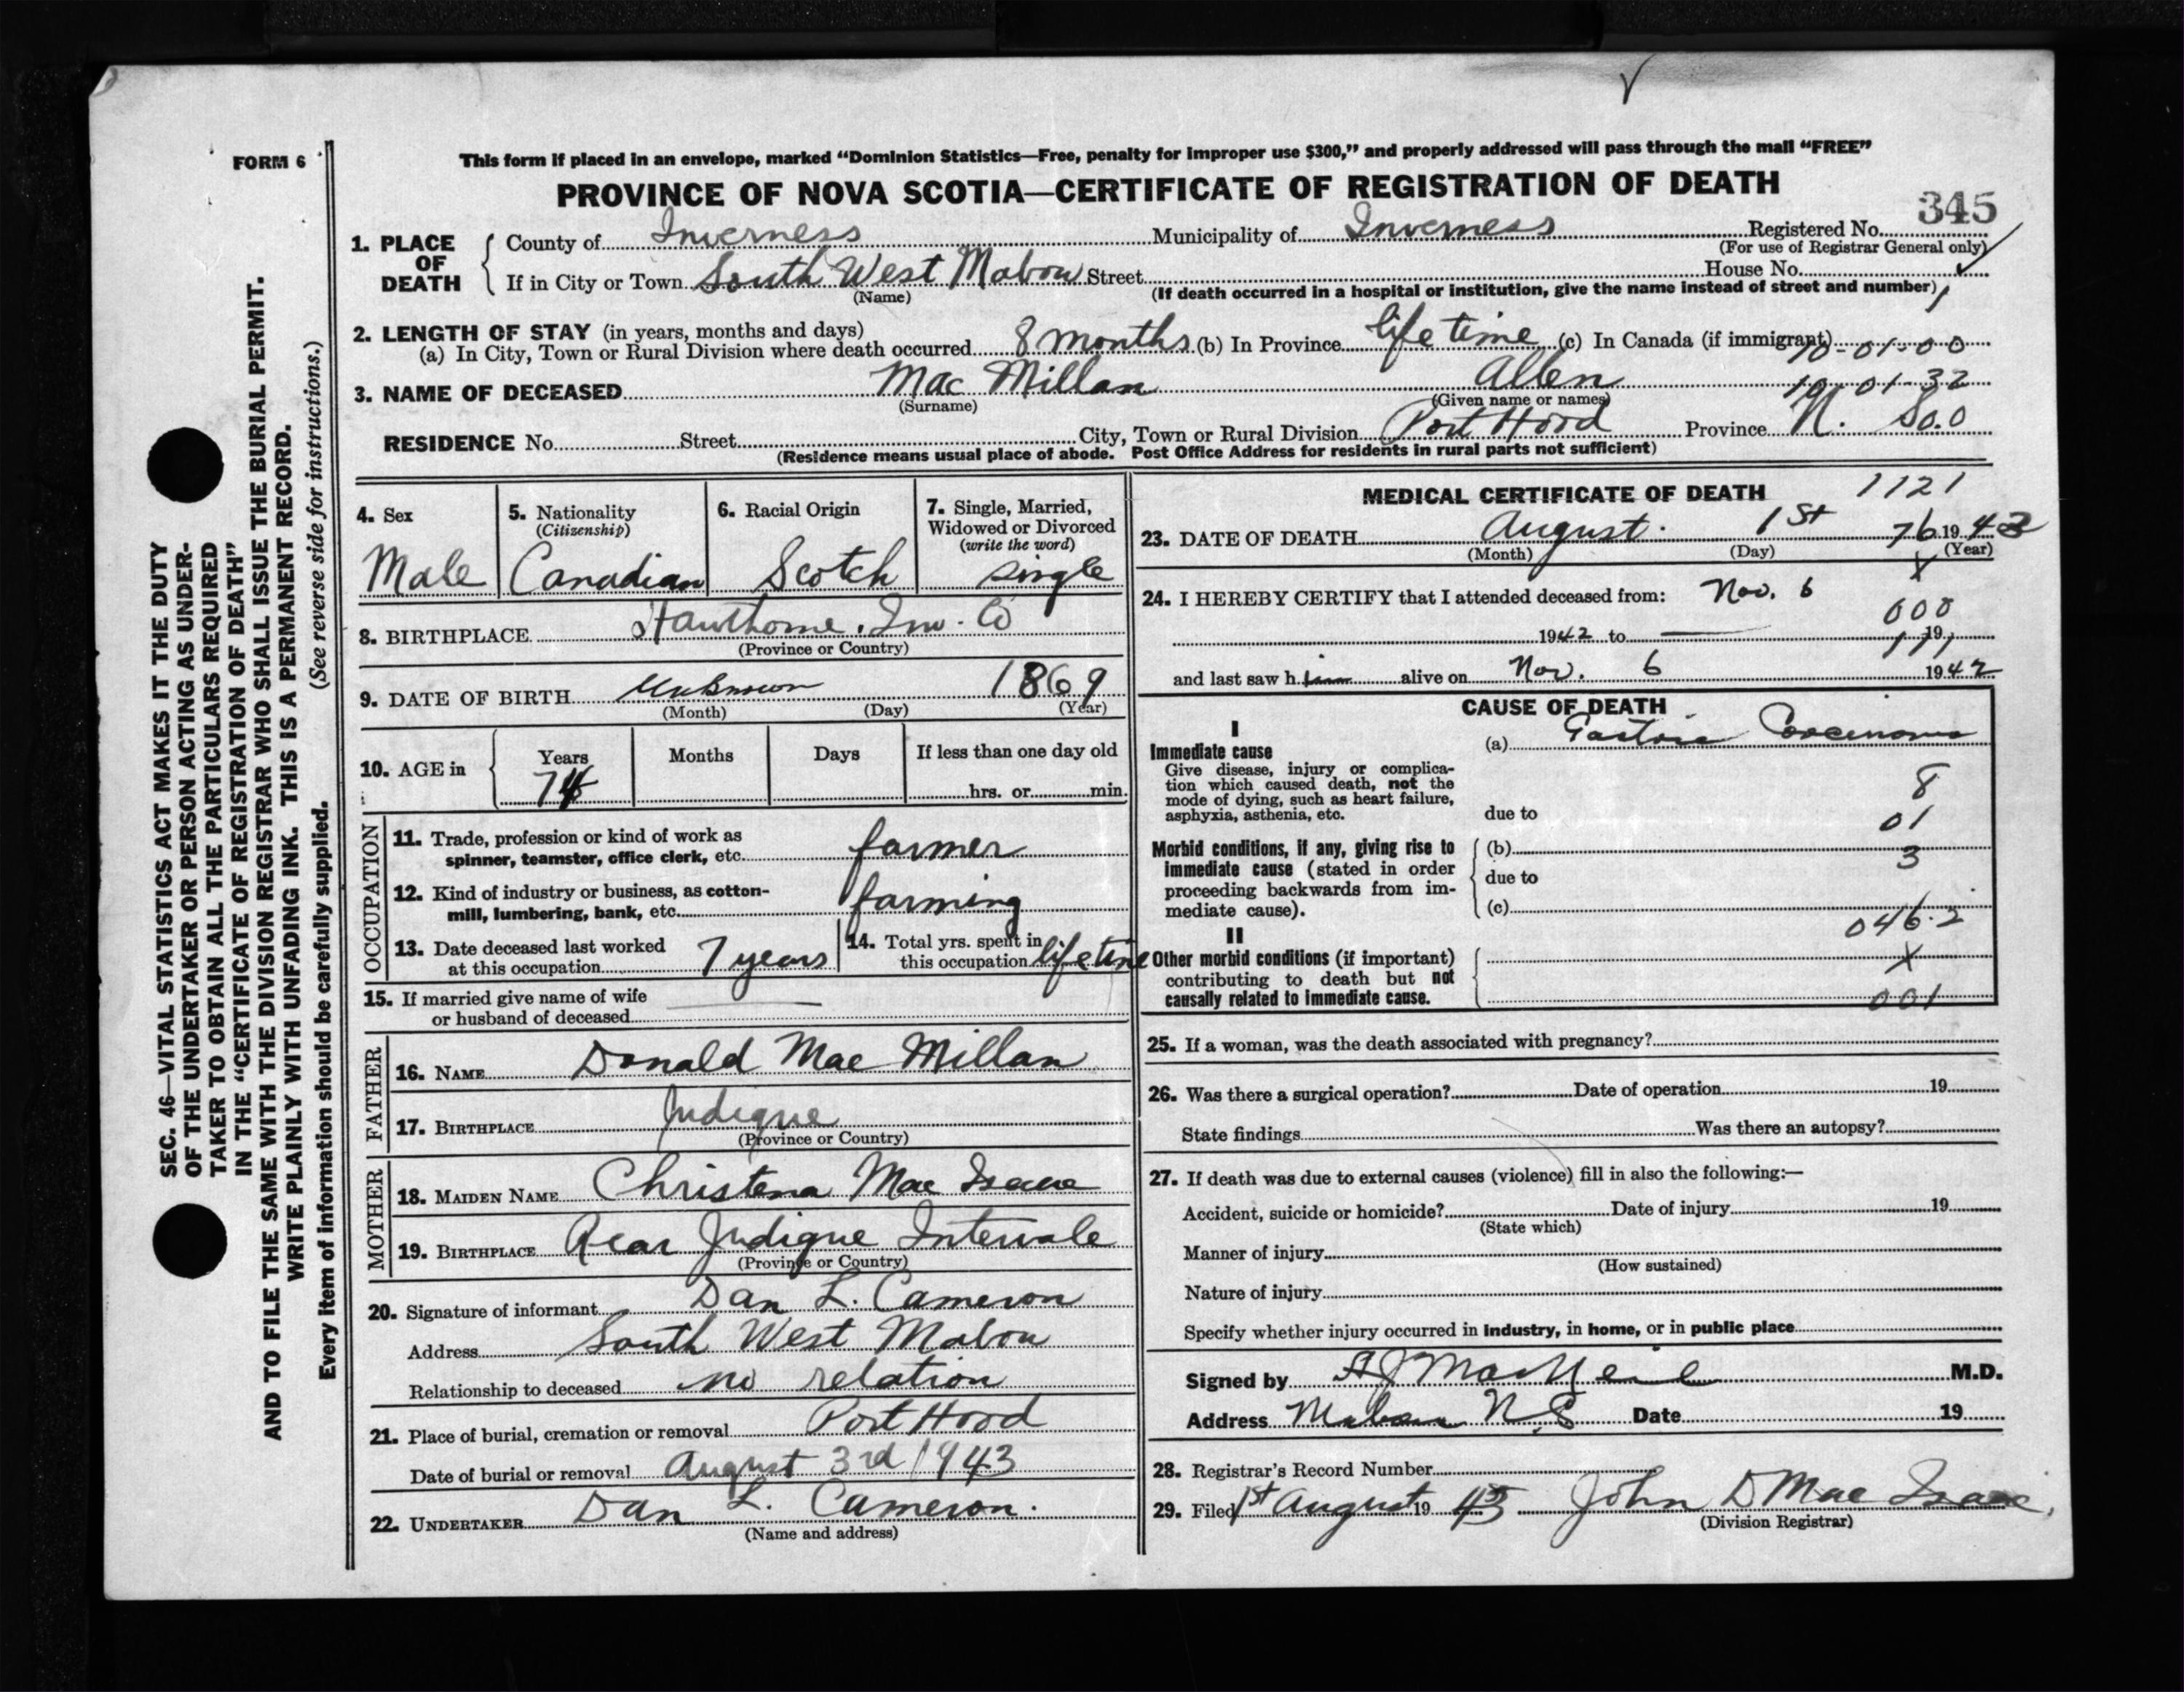 FORM 6
This form if placed in an envelope, marked “Dominion Statistics—Free, penalty for improper use $300,” and properly addressed will pass through the mail “FREE”
PROVINCE OF NOVA SCOTIA—CERTIFICATE OF REGISTRATION OF DEATH
345
1. PLACE OF DEATH
County of Inverness Municipality of Inverness Registered No.
(For use of Registrar General only)
If in City or Town South West Mabou Street House No.
(Name) (If death occurred in a hospital or institution, give the name instead of street and number)
2. LENGTH OF STAY (in years, months and days)
(a) In City, Town or Rural Division where death occurred 8 months (b) In Province life time (c) In Canada (if immigrant)
10-01-00
3. NAME OF DECEASED Mac Millan Allen 10-01-32
(Surname) (Given name or names)
RESIDENCE No. Street City, Town or Rural Division Port Hood Province N. So.0
(Residence means usual place of abode. Post Office Address for residents in rural parts not sufficient)
4. Sex
Male
5. Nationality
(Citizenship)
Canadian
6. Racial Origin
Scotch
7. Single, Married,
Widowed or Divorced
(write the word)
single
8. BIRTHPLACE Hawthorne. Inv. Co
(Province or Country)
9. DATE OF BIRTH Unknown 1869
(Month) (Day) (Year)
10. AGE in
Years Months Days If less than one day old
74 hrs. or min.
OCCUPATION
11. Trade, profession or kind of work as
spinner, teamster, office clerk, etc. farmer
12. Kind of industry or business, as cotton-
mill, lumbering, bank, etc. farming
13. Date deceased last worked
at this occupation 7 years
14. Total yrs. spent in
this occupation life time
15. If married give name of wife
or husband of deceased
FATHER
16. NAME Donald Mac Millan
17. BIRTHPLACE Judique
(Province or Country)
MOTHER
18. MAIDEN NAME Christena Mac Isaac
19. BIRTHPLACE Rear Judique Intervale
(Province or Country)
20. Signature of informant Dan L. Cameron
Address South West Mabou
Relationship to deceased no relation
21. Place of burial, cremation or removal Port Hood
Date of burial or removal August 3rd 1943
22. UNDERTAKER Dan L. Cameron.
(Name and address)
MEDICAL CERTIFICATE OF DEATH 1121
23. DATE OF DEATH August 1st 76 1943
(Month) (Day) (Year)
X
24. I HEREBY CERTIFY that I attended deceased from: Nov. 6
000
1942 to — 19
111
and last saw him alive on Nov. 6 1942
CAUSE OF DEATH
I
Immediate cause
Give disease, injury or complica-
tion which caused death, not the
mode of dying, such as heart failure,
asphyxia, asthenia, etc.
(a) Gastric Carcinoma
8
due to
01
Morbid conditions, if any, giving rise to
immediate cause (stated in order
proceeding backwards from im-
mediate cause).
(b)
3
due to
(c)
046.2
II
Other morbid conditions (if important)
contributing to death but not
causally related to immediate cause.
X
001
25. If a woman, was the death associated with pregnancy?
26. Was there a surgical operation? Date of operation 19
State findings Was there an autopsy?
27. If death was due to external causes (violence) fill in also the following:—
Accident, suicide or homicide? Date of injury 19
(State which)
Manner of injury
(How sustained)
Nature of injury
Specify whether injury occurred in industry, in home, or in public place
Signed by A J MacNeil M.D.
Address Mabou N.S Date 19
28. Registrar's Record Number
29. Filed 1st August 19 43 John D Mac Isaac.
(Division Registrar)
SEC. 46—VITAL STATISTICS ACT MAKES IT THE DUTY
OF THE UNDERTAKER OR PERSON ACTING AS UNDER-
TAKER TO OBTAIN ALL THE PARTICULARS REQUIRED
IN THE “CERTIFICATE OF REGISTRATION OF DEATH”
AND TO FILE THE SAME WITH THE DIVISION REGISTRAR WHO SHALL ISSUE THE BURIAL PERMIT.
WRITE PLAINLY WITH UNFADING INK. THIS IS A PERMANENT RECORD.
Every item of information should be carefully supplied. (See reverse side for instructions.)